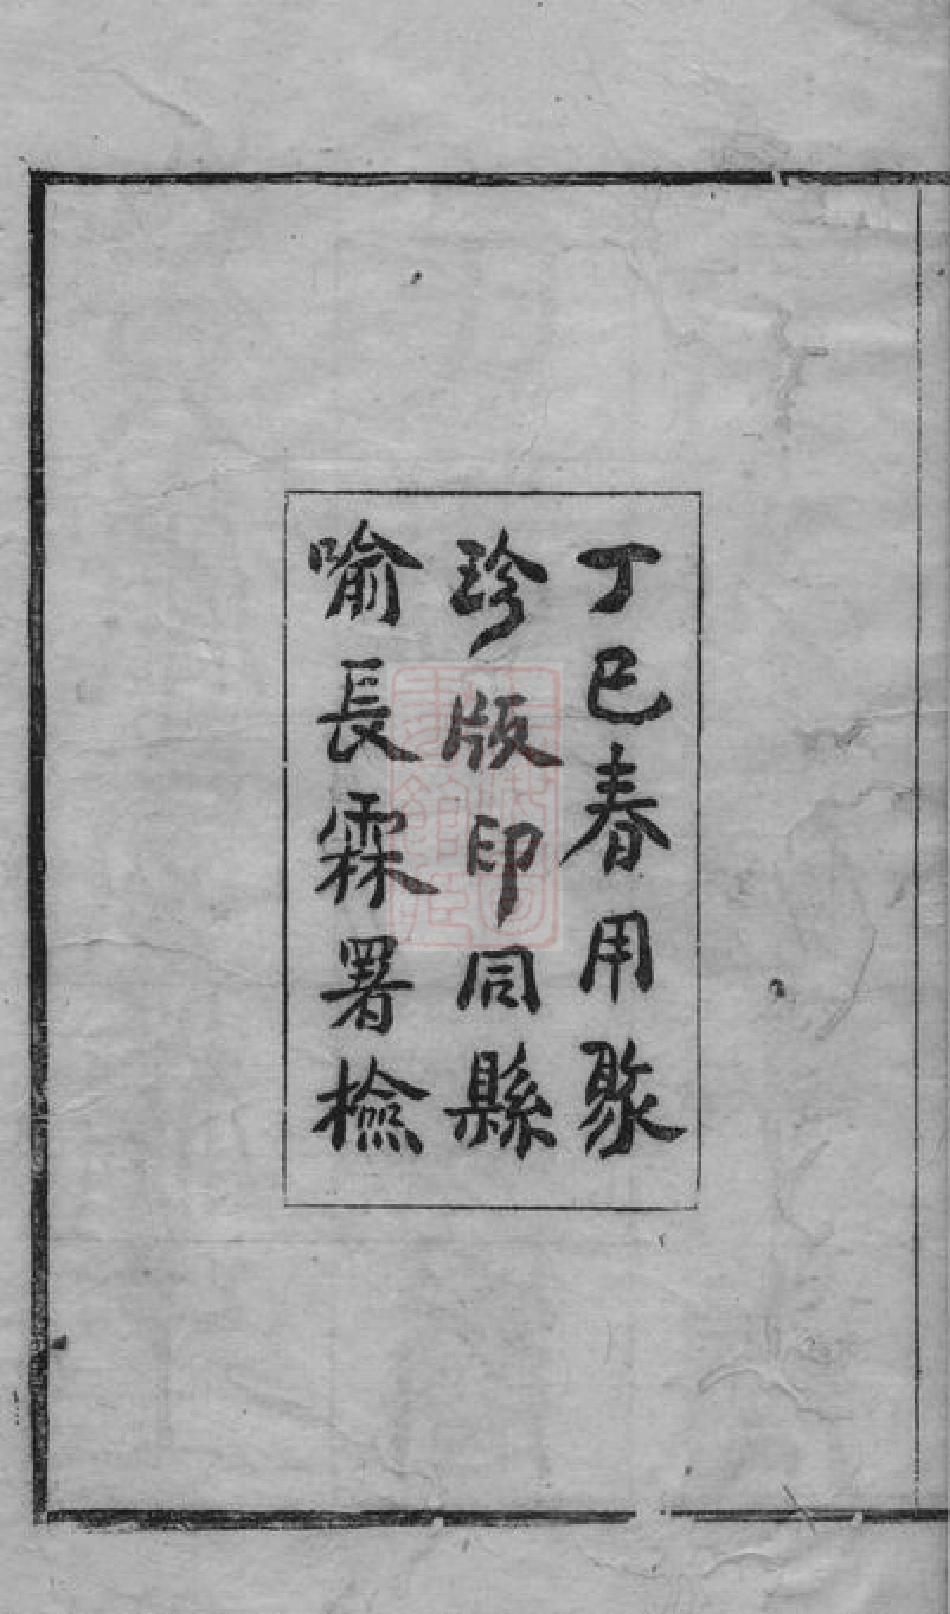 丁巳春用聚
珍版印同縣
喻長霖署檢